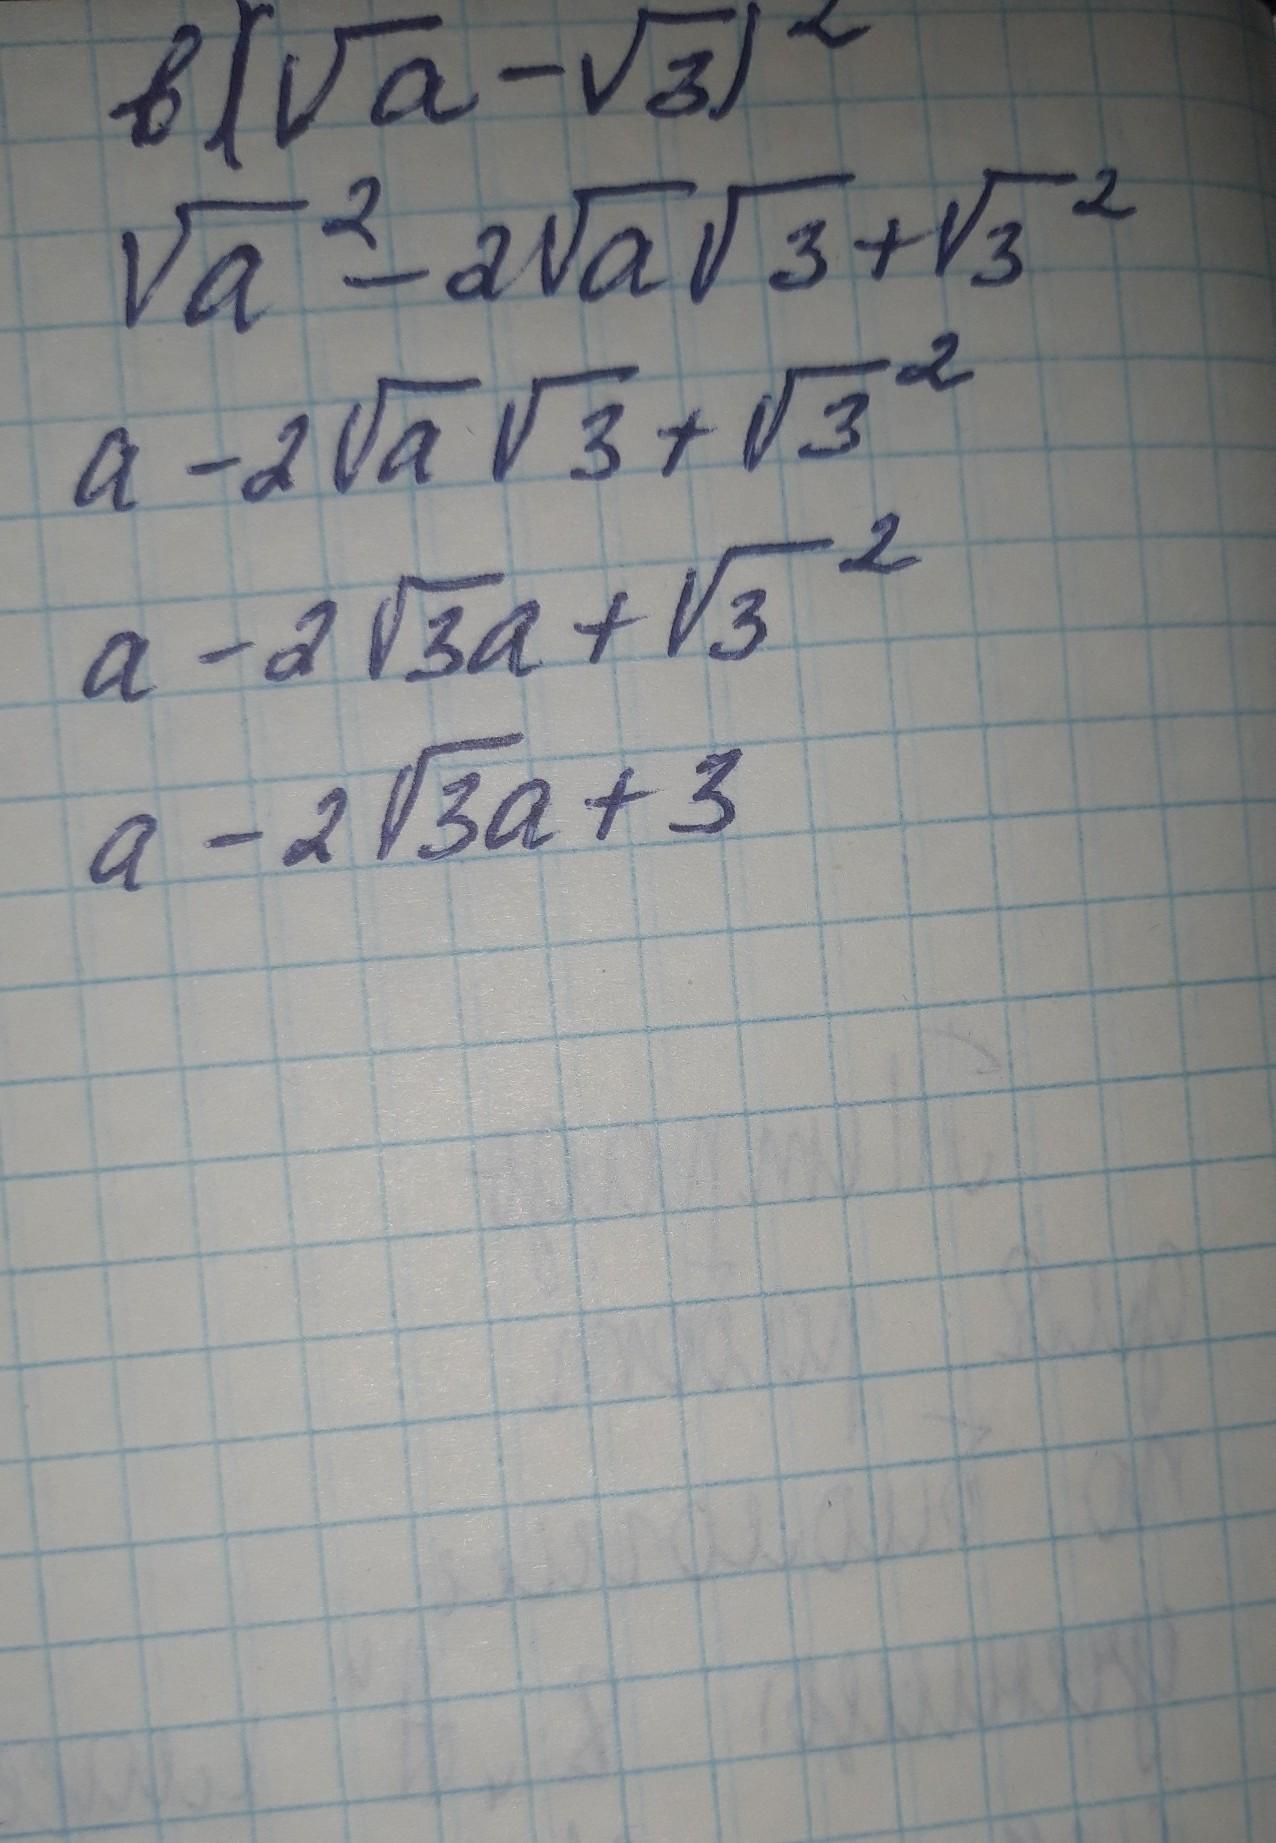 в) (√a - √3)²
√a² - 2√a√3 + √3²
a - 2√a √3 + √3²
a - 2√3a + √3²
a - 2√3a + 3